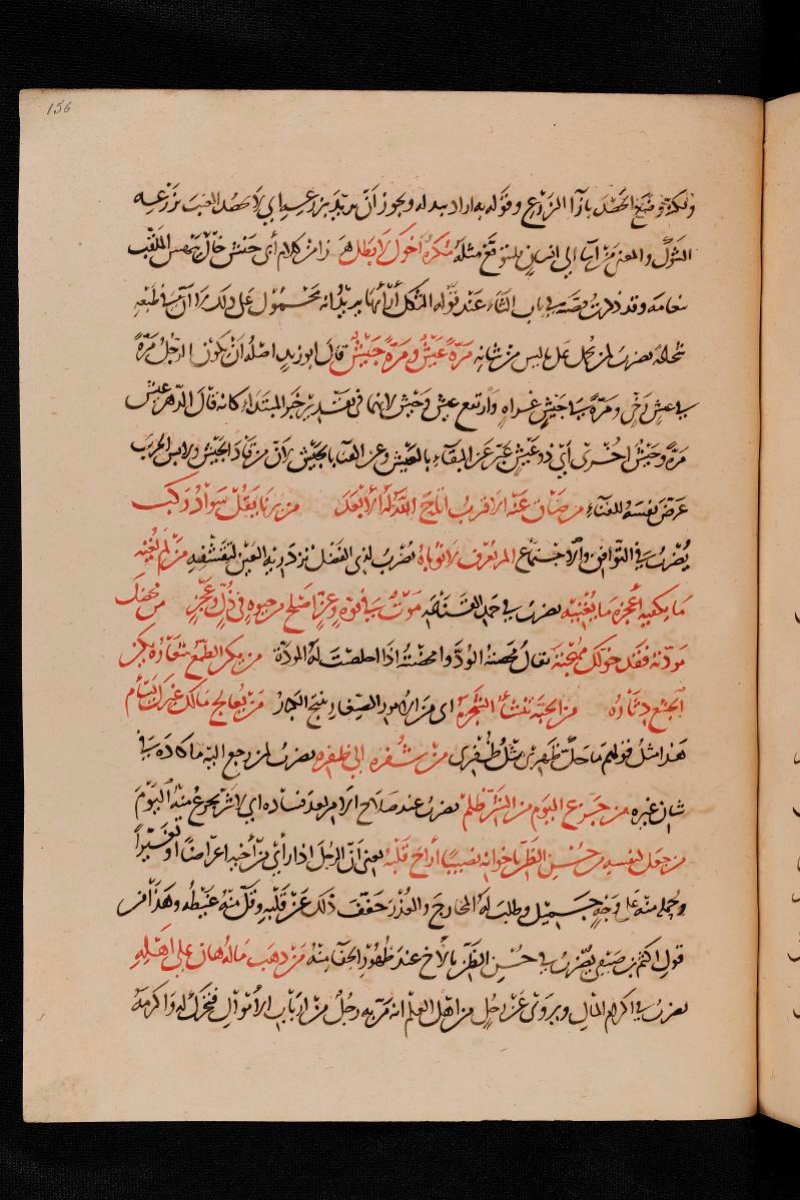 156
ولكنه وضع الحصد بازاء الزرع وقوله به اراد بدله ويجوز ان يريد بزرعه اي لا يحصد العنب بزرعه
الشوك والمعنى من اساء الى انسان فليتوقع مثله مكره اخوك لا بطل هذا من كلام أبي حنش خال بيهس الملقب
بنعامة وقد ذكرت قصته في باب الثاء عند قوله ثكل أرأمها يريد انه محمول على ذلك لا ان في طبعه
شجاعة يضرب لمن يحمل على ما ليس من شانه مرة عيش ومرة جيش قال ابو زيد اصله ان يكون الرجل مرة
في عيش رخي ومرة في جيش غزاة وارتفع عيش وجيش لانهما في تقدير خبر المبتداء كانه قال الدهر عيش
مرة وجيش اخرى أي ذو عيش عبر عن البقاء بالعيش وعن الفناء بالجيش لان من قاد الجيش ولابس الحرب
عرض نفسه للفناء من ضاق عنه الاقرب اتاح الله له الابعد من يرنا يقل سواد ركب
يضرب في التوافق والاجتماع المر تعرف لا ثوباه يضرب لذي الفضل تزدريه العين لتقشفه من لم يغنه
ما يكفيه أعجزه ما يغنيه يضرب في حمد القناعة موت في قوة وعز اصلح من حيوة في ذل وعجز من محضك
مودته فقد خولك مهجته يقال محضته الود وامحضته اذا اخلصت له المودة من يكن الطمع شعاره يكن
الجشع دثاره من الحبة تنشأ الشجرة اى من الامور الصغار ينتج الكبار من يعالج مالك غيرك يسأم
هذا مثل قولهم ما حك ظهرى مثل ظفرى من شفره الى ظفره يضرب لمن رجع اليه ما كاده في
شان غيره من جزع اليوم من الشر ظلم يضرب عند صلاح الامر بعد فساده اي لا شر يجزع منه اليوم
من جعل لنفسه من حسن الظن باخوانه نصيبا أراح قلبه يعنى ان الرجل اذا رأى من أخيه اعراضا او تغيرا
وحمله منه على وجه جميل وطلب له المخارج والعذر خفف ذلك عن قلبه وقل منه غيظه وهذا من
قول اكثم بن صيفي يضرب في حسن الظن بالأخ عند ظهور الجفاء منه من ذهب ماله هان على اهله
يضرب في اكرام المال ويروى عن رجل من اهل العلم انه مر به رجل من ارباب الأموال فتحرك له واكرمه